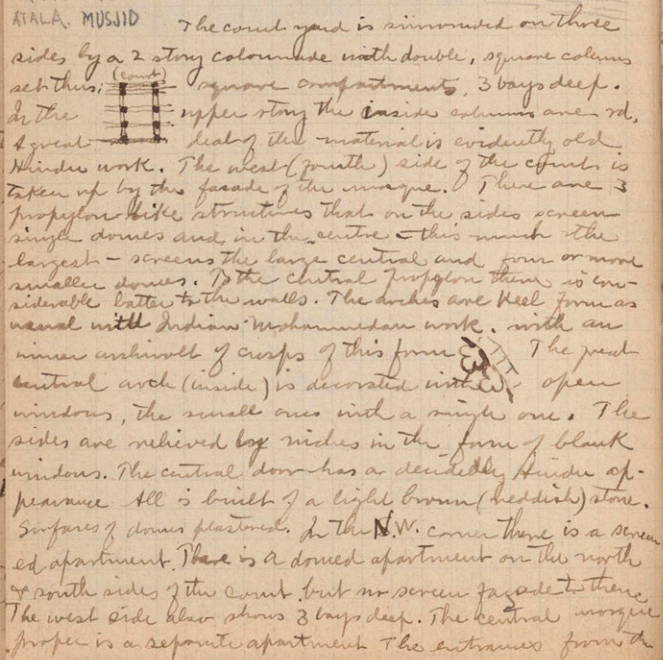 ATALA. MUSJID The court yard is surrounded on three
sides by a 2 story colonnade with double, square columns
set thus, (court) square compartments, 3 bays deep.
In the upper story the inside columns are rd.
A great deal of the material is evidently old
Hindu work. The west (fourth) side of the court is
taken up by the facade of the mosque. There are 3
propylon-like structures that on the sides screen
single domes and in the centre - this much the
largest - screens the large central and four or more
smaller domes. To the central propylon there is con-
siderable batter to the walls. The arches are keel form as
usual with Indian-Mohammedan work. with an
inner archivolt of cusps of this form The great
central arch (inside) is decorated with open
windows, the small ones with a single one. The
sides are relieved by niches in the form of blank
windows. The central door has a decidedly Hindu ap-
pearance All is built of a light brown (reddish) stone.
Surfaces of domes plastered. In the N.W. corner there is a screen
ed apartment. There is a domed apartment on the north
& south sides of the court, but no screen façade to them
The west side also shows 3 bays deep. The central mosque
proper is a separate apartment The entrances from the